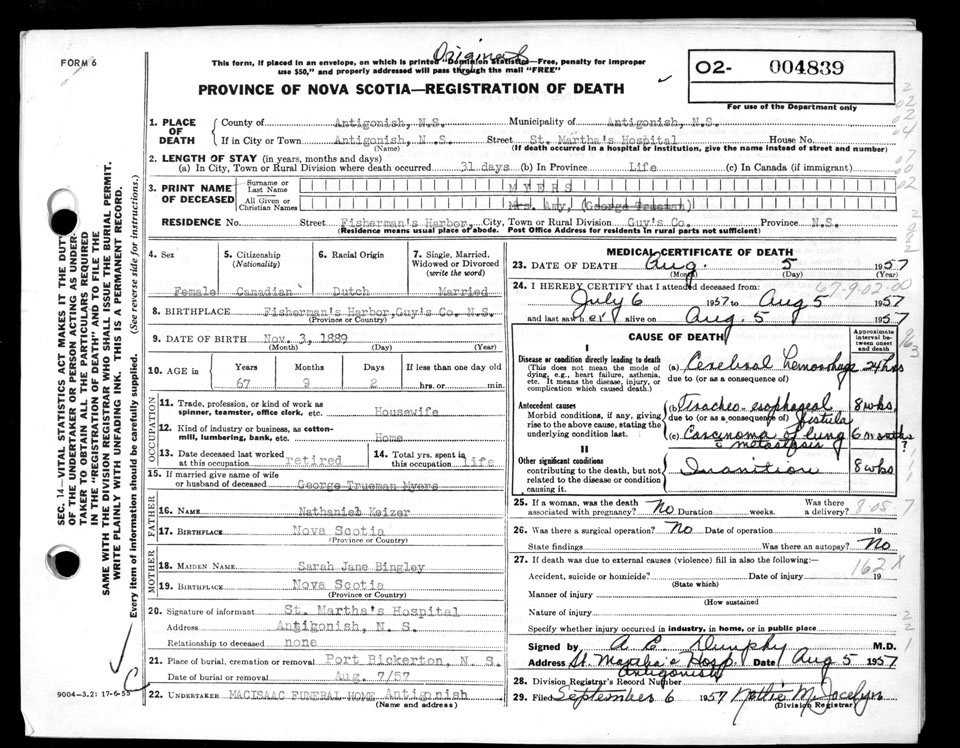 Original
FORM 6
This form, if placed in an envelope, on which is printed "Dominion Statistics—Free, penalty for improper
use $50," and properly addressed will pass through the mail "FREE"
O2- 004839
PROVINCE OF NOVA SCOTIA—REGISTRATION OF DEATH
For use of the Department only
1. PLACE OF DEATH
County of Antigonish, N.S. Municipality of Antigonish, N.S.
If in City or Town Antigonish, N.S. Street St. Martha's Hospital House No.
(Name) (If death occurred in a hospital or institution, give the name instead of street and number)
2. LENGTH OF STAY (in years, months and days)
(a) In City, Town or Rural Division where death occurred 31 days (b) In Province Life (c) In Canada (if immigrant)
3. PRINT NAME OF DECEASED
Surname or Last Name MYERS
All Given or Christian Names Mrs. Amy, (George Trueman)
RESIDENCE No. Street Fisherman's Harbor, City, Town or Rural Division Guy's Co. Province N.S.
(Residence means usual place of abode. Post Office Address for residents in rural parts not sufficient)
4. Sex
Female
5. Citizenship (Nationality)
Canadian
6. Racial Origin
Dutch
7. Single, Married, Widowed or Divorced (write the word)
Married
8. BIRTHPLACE Fisherman's Harbor, Guy's Co. N.S.
(Province or Country)
9. DATE OF BIRTH Nov. 3, 1889
(Month) (Day) (Year)
10. AGE in
Years Months Days If less than one day old
67 9 2 hrs. or min.
OCCUPATION
11. Trade, profession, or kind of work as
spinner, teamster, office clerk, etc. Housewife
12. Kind of industry or business, as cotton-
mill, lumbering, bank, etc. Home
13. Date deceased last worked at this occupation retired
14. Total yrs. spent in this occupation life
15. If married give name of wife
or husband of deceased George Trueman Myers
FATHER
16. NAME Nathaniel Keizer
17. BIRTHPLACE Nova Scotia
(Province or Country)
MOTHER
18. MAIDEN NAME Sarah Jane Bingley
19. BIRTHPLACE Nova Scotia
(Province or Country)
20. Signature of informant St. Martha's Hospital
Address Antikonish, N. S.
Relationship to deceased none
21. Place of burial, cremation or removal Port Bickerton, N. S.
Date of burial or removal Aug. 7/57
22. UNDERTAKER MACISAAC FUNERAL HOME Antigonish
(Name and address)
MEDICAL CERTIFICATE OF DEATH
23. DATE OF DEATH Aug. 5 1957
(Month) (Day) (Year)
67-9-02-00
24. I HEREBY CERTIFY that I attended deceased from:
July 6 1957 to Aug 5 1957
and last saw her alive on Aug. 5 1957
CAUSE OF DEATH
Approximate interval between onset and death
I
Disease or condition directly leading to death
(This does not mean the mode of
dying, e.g., heart failure, asthenia,
etc. It means the disease, injury, or
complication which caused death.)
(a) Cerebral hemorrhage 24 hrs
due to (or as a consequence of)
Antecedent causes
Morbid conditions, if any, giving
rise to the above cause, stating the
underlying condition last.
(b) Tracheo-esophageal fistula 8 wks.
due to (or as a consequence of)
(c) Carcinoma of lung c metastasis 6 months ?
II
Other significant conditions
contributing to the death, but not
related to the disease or condition
causing it.
Inanition 8 wks
25. If a woman, was the death
associated with pregnancy? No Duration weeks. Was there a delivery?
8-05-7
26. Was there a surgical operation? No Date of operation 19
State findings Was there an autopsy? No
27. If death was due to external causes (violence) fill in also the following:—
162 X
Accident, suicide or homicide? Date of injury 19
(State which)
Manner of injury
(How sustained
Nature of injury
Specify whether injury occurred in industry, in home, or in public place
Signed by A E Dunphy M.D.
Address St. Martha's Hosp. Antigonish Date Aug 5 1957
28. Division Registrar's Record Number
29. Filed September 6 1957 Nettie M. Jocelyn
(Division Registrar)
SEC. 14—VITAL STATISTICS ACT MAKES IT THE DUTY
OF THE UNDERTAKER OR PERSON ACTING AS UNDER-
TAKER TO OBTAIN ALL THE PARTICULARS REQUIRED
IN THE "REGISTRATION OF DEATH" AND TO FILE THE
SAME WITH THE DIVISION REGISTRAR WHO SHALL ISSUE THE BURIAL PERMIT.
WRITE PLAINLY WITH UNFADING INK. THIS IS A PERMANENT RECORD.
Every item of information should be carefully supplied. (See reverse side for instructions.)
9004-3.2: 17-6-55